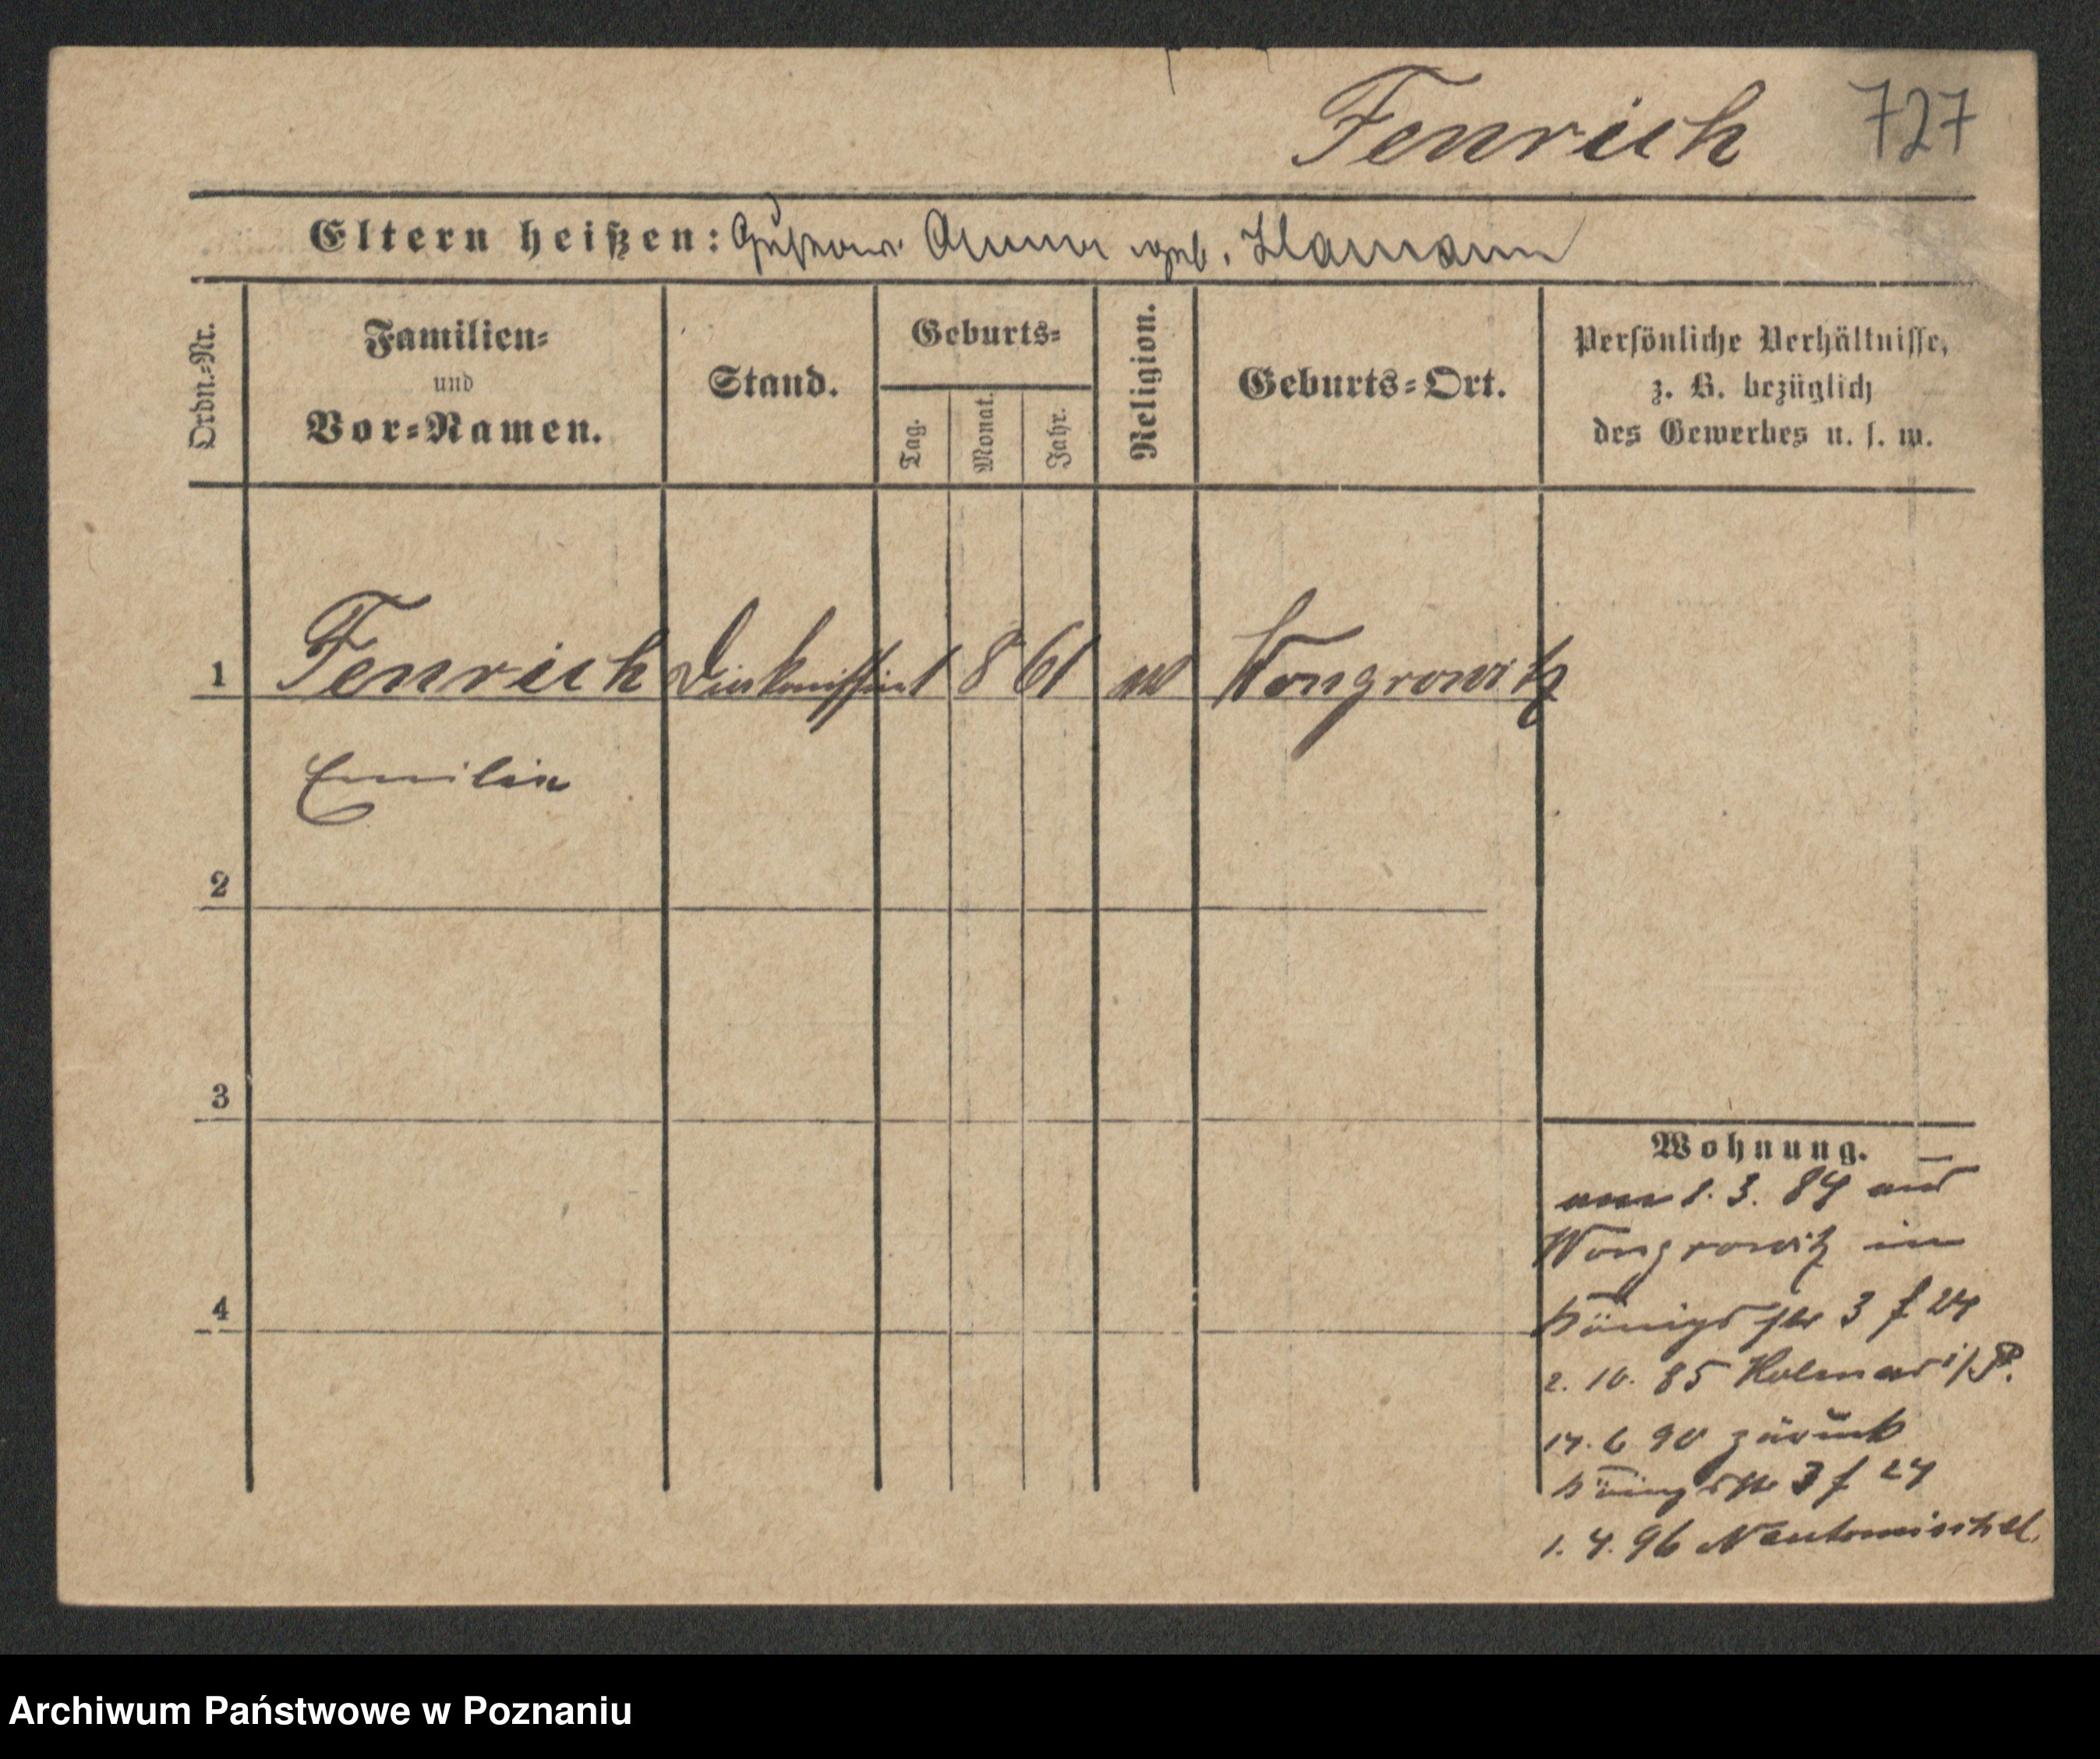 Fenrich 727
Eltern heißen: Gustav Anna geb. Hamann
Ordn.-Nr.
Familien- und Vor-Namen.
Stand.
Geburts-
Tag.
Monat.
Jahr.
Religion.
Geburts-Ort.
Persönliche Verhältnisse,
z. B. bezüglich
des Gewerbes u. s. w.
1 Fenrich Diakonissin 1 8 61 Wongrowitz
Emilie
2
3
4
Wohnung.
1. 3. 84 aus
Wongrowitz in
Königsstr 3 f 24
2. 10. 85 Kolmar i/P.
17. 6 90 zurück
Königsstr 3 f 24
1. 4. 96 Neutomischel
Archiwum Państwowe w Poznaniu